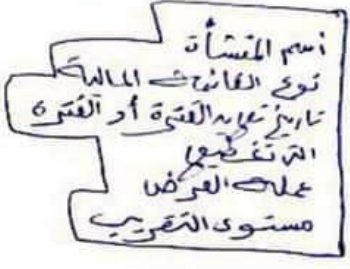 اسم المنشأة
نوع القائمة المالية
تاريخ نهاية الفترة أو الفترة
التي تغطيها
عملة العرض
مستوى التقريب